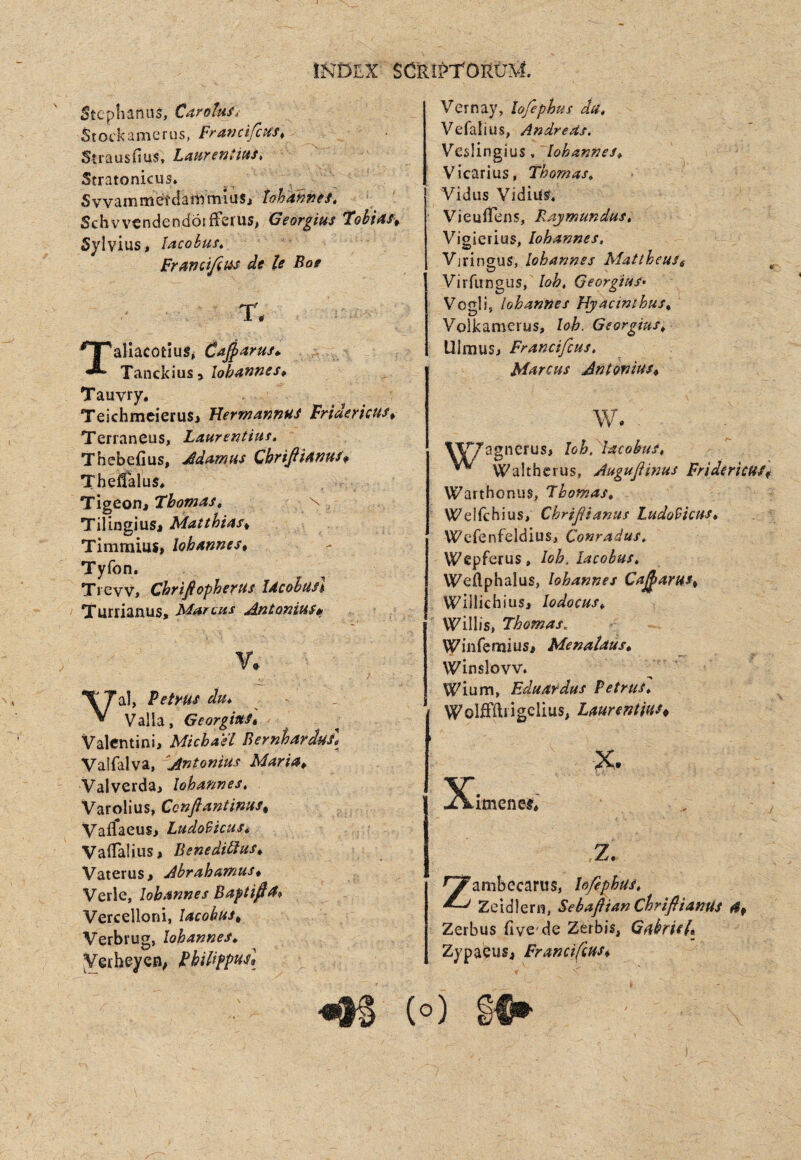 INDEX SCRIPTORUM.
Stephanus, Carolus.
Stockamerus, Franciſcus.
Strausſius, Laurentius.
Stratonicus.
Svvammerdammius, Iohannes.
Schvvendendörfferus, Georgius Tobias.
Sylvius, Iacobus.
Franciſcus de le Boe
T.
Taliacotius, Caſparus.
Tanckius, Iohannes.
Tauvry.
Teichmeierus, Hermannus Fridericus.
Terraneus, Laurentius.
Thebeſius, Adamus Chriſtianus.
Theſſalus.
Tigeon, Thomas.
Tilingius, Matthias.
Timmius, Iohannes.
Tyſon.
Trevv, Chriſtopherus Iacobus.
Turrianus, Marcus Antonius.
V.
Val, Petrus du.
Valla, Georgius.
Valentini, Michaël Bernhardus.
Valſalva, Antonius Maria.
Valverda, Iohannes.
Varolius, Conſtantinus.
Vaſſaeus, Ludovicus.
Vaſſalius, Benedictus.
Vaterus, Abrahamus.
Verle, Iohannes Baptiſta.
Vercelloni, Iacobus.
Verbrug, Iohannes.
Verheyen, Philippus.
Vernay, Ioſephus du.
Veſalius, Andreas.
Veslingius, Iohannes.
Vicarius, Thomas.
Vidus Vidius.
Vieuſſens, Raymundus.
Vigierius, Iohannes.
Viringus, Iohannes Mattheus.
Virſungus, Ioh. Georgius.
Vogli, Iohannes Hyacinthus.
Volkamerus, Ioh. Georgius.
Ulmus, Franciſcus.
Marcus Antonius.
W.
Wagnerus, Ioh. Iacobus.
Waltherus, Auguſtinus Fridericus.
Warthonus, Thomas.
Welſchius, Chriſtianus Ludovicus.
Weſenfeldius, Conradus.
Wepferus, Ioh. Iacobus.
Weſtphalus, Iohannes Caſparus.
Willichius, Iodocus.
Willis, Thomas.
Winſemius, Menalaus.
Winslovv.
Wium, Eduardus Petrus.
Wolffſtrigelius, Laurentius.
X.
Ximenes.
Z.
Zambecarus, Ioſephus.
Zeidlern, Sebaſtian Chriſtianus a.
Zerbus ſive de Zerbis, Gabriel.
Zypaeus, Franciſcus.
(o)